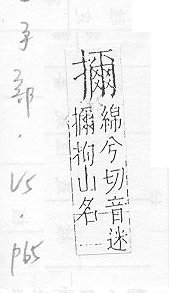 擟
綿兮切音迷
擟拘山名
手部·V5·p65